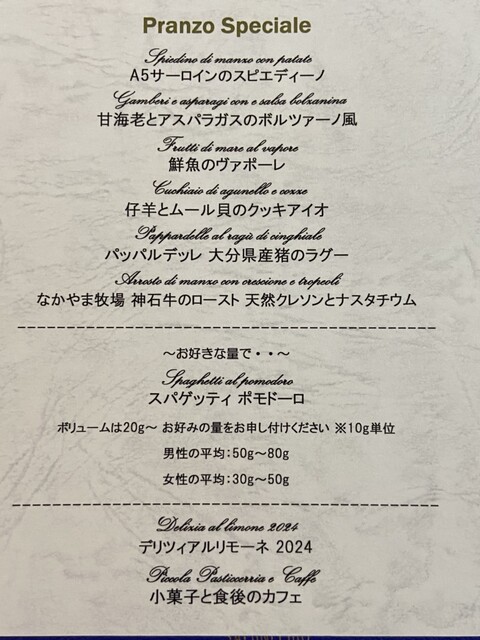 Pranzo Speciale
Spiedino di manzo con patate
A5サーロインのスピエディーノ
Gamberi e asparagi con e salsa bolzanina
甘海老とアスパラガスのボルツァーノ風
Frutti di mare al vapore
鮮魚のヴァポーレ
Cuchiaio di agunello e cozze
仔羊とムール貝のクッキアイオ
Pappardelle al ragù di cinghiale
パッパルデッレ 大分県産猪のラグー
Arrosto di manzo con crescione e tropeoli
なかやま牧場 神石牛のロースト 天然クレソンとナスタチウム
～お好きな量で・・～
Spaghetti al pomodoro
スパゲッティ ポモドーロ
ボリュームは20g～ お好みの量をお申し付けください ※10g単位
男性の平均：50g～80g
女性の平均：30g～50g
Delizia al limone 2024
デリツィアルリモーネ 2024
Piccola Pasticcerria e Caffe
小菓子と食後のカフェ